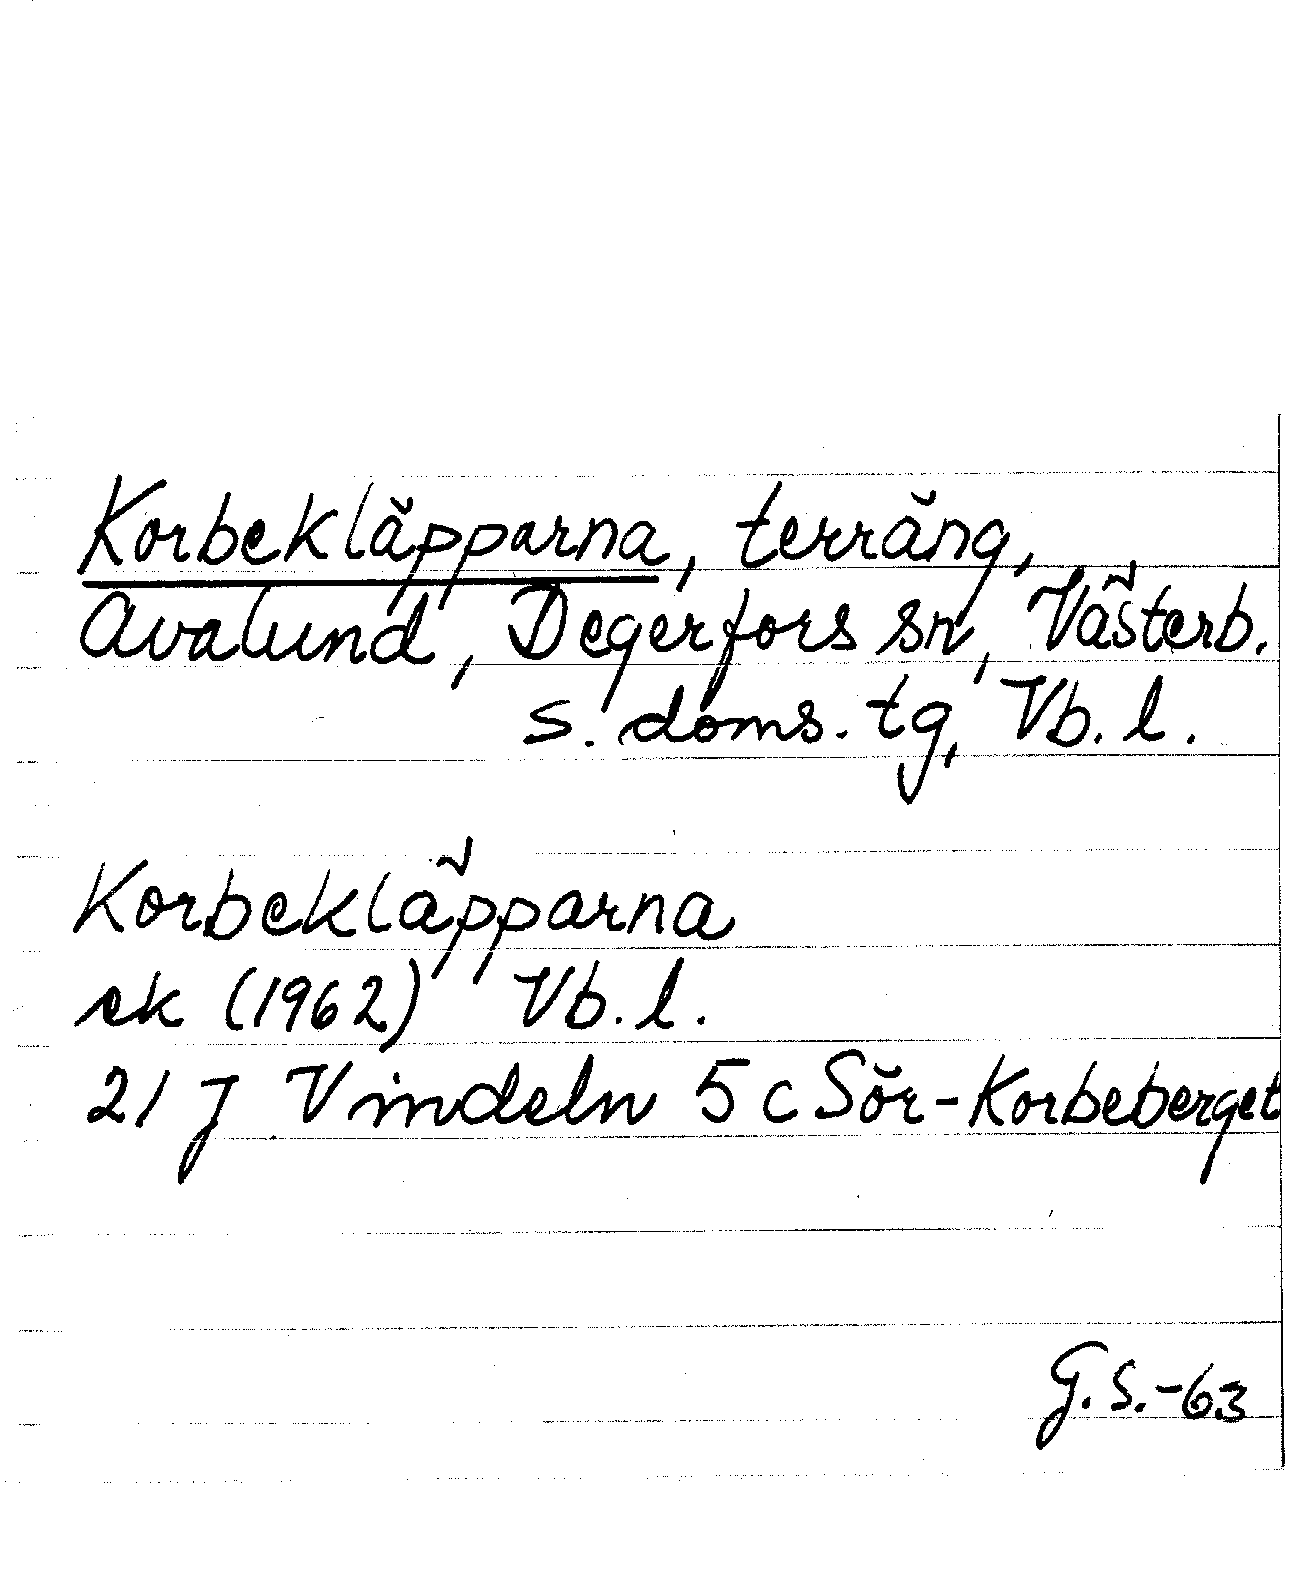 Korbekläpparna, terräng,
Avalund, Degerfors sn, Västerb.
s. doms. tg, Vb. l.
Korbekläpparna
ek (1962) Vb. l.
21 J Vindeln 5 c Sör-Korbeberget
G. S. -63